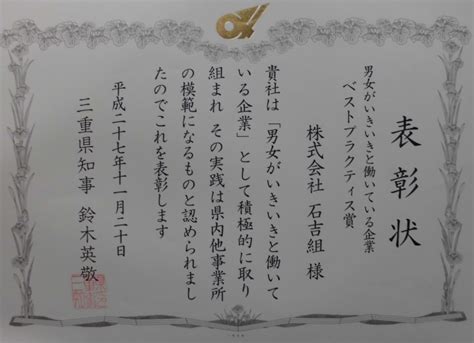 表彰状
男女がいきいきと働いている企業
ベストプラクティス賞
株式会社 石吉組 様
貴社は「男女がいきいきと働いて
いる企業」として積極的に取り
組まれ その実践は県内他事業所
の模範になるものと認められまし
たのでこれを表彰します
平成二十七年十一月二十日
三重県知事 鈴木英敬